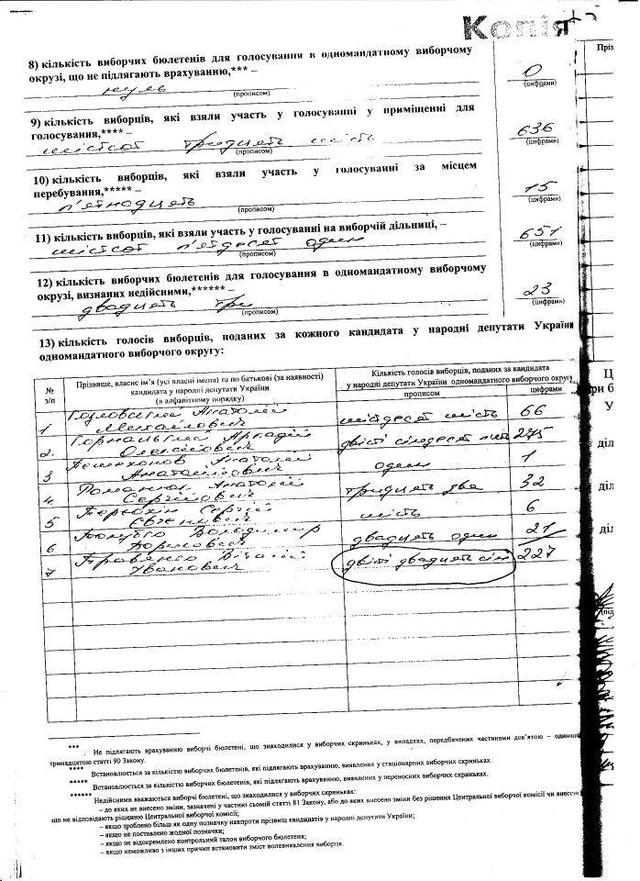 Копія
8) кількість виборчих бюлетенів для голосування в одномандатному виборчому
окрузі, що не підлягають врахуванню,*** –
нуль
0
(прописом)
(цифрами)
9) кількість виборців, які взяли участь у голосуванні у приміщенні для
голосування,**** –
шістсот тридцять шість
636
(прописом)
(цифрами)
10) кількість виборців, які взяли участь у голосуванні за місцем
перебування,***** –
п'ятнадцять
15
(прописом)
(цифрами)
11) кількість виборців, які взяли участь у голосуванні на виборчій дільниці, –
шістсот п'ятдесят один
651
(прописом)
(цифрами)
12) кількість виборчих бюлетенів для голосування в одномандатному виборчому
окрузі, визнаних недійсними,****** –
двадцять три
23
(прописом)
(цифрами)
13) кількість голосів виборців, поданих за кожного кандидата у народні депутати України
одномандатного виборчого округу:
№ з/п
Прізвище, власне ім'я (усі власні імена) та по батькові (за наявності)
кандидата у народні депутати України
(в алфавітному порядку)
Кількість голосів виборців, поданих за кандидата
у народні депутати України одномандатного виборчого округу
прописом
цифрами
Анатолій
1 Михайлович шістдесят шість 66
Корнацький Аркадій
2. Олексійович двісті сімдесят п'ять 275
Анатолій
3 Анатолійович один 1
Романюк Анатолій
4. Сергійович тридцять два 32
Терьохін Сергій
5 Євгенович шість 6
Володимир
6 Борисович двадцять один 21
Травянко Віталій
7 Іванович двісті двадцять сім 227
*** Не підлягають врахуванню виборчі бюлетені, що знаходилися у виборчих скриньках, у випадках, передбачених частинами дев'ятою –
тринадцятою статті 90 Закону.
**** Встановлюється за кількістю виборчих бюлетенів, які підлягають врахуванню, виявлених у стаціонарних виборчих скриньках.
***** Встановлюється за кількістю виборчих бюлетенів, які підлягають врахуванню, виявлених у переносних виборчих скриньках.
****** Недійсними вважаються виборчі бюлетені, що знаходилися у виборчих скриньках:
– до яких не внесено зміни, зазначені у частині сьомій статті 81 Закону, або до яких внесено зміни без рішення Центральної виборчої комісії чи внесені
що не відповідають рішенню Центральної виборчої комісії;
– якщо зроблено більш як одну позначку навпроти прізвищ кандидатів у народні депутати України;
– якщо не поставлено жодної позначки;
– якщо не відокремлено контрольний талон виборчого бюлетеня;
– якщо неможливо з інших причин встановити зміст волевиявлення виборця.